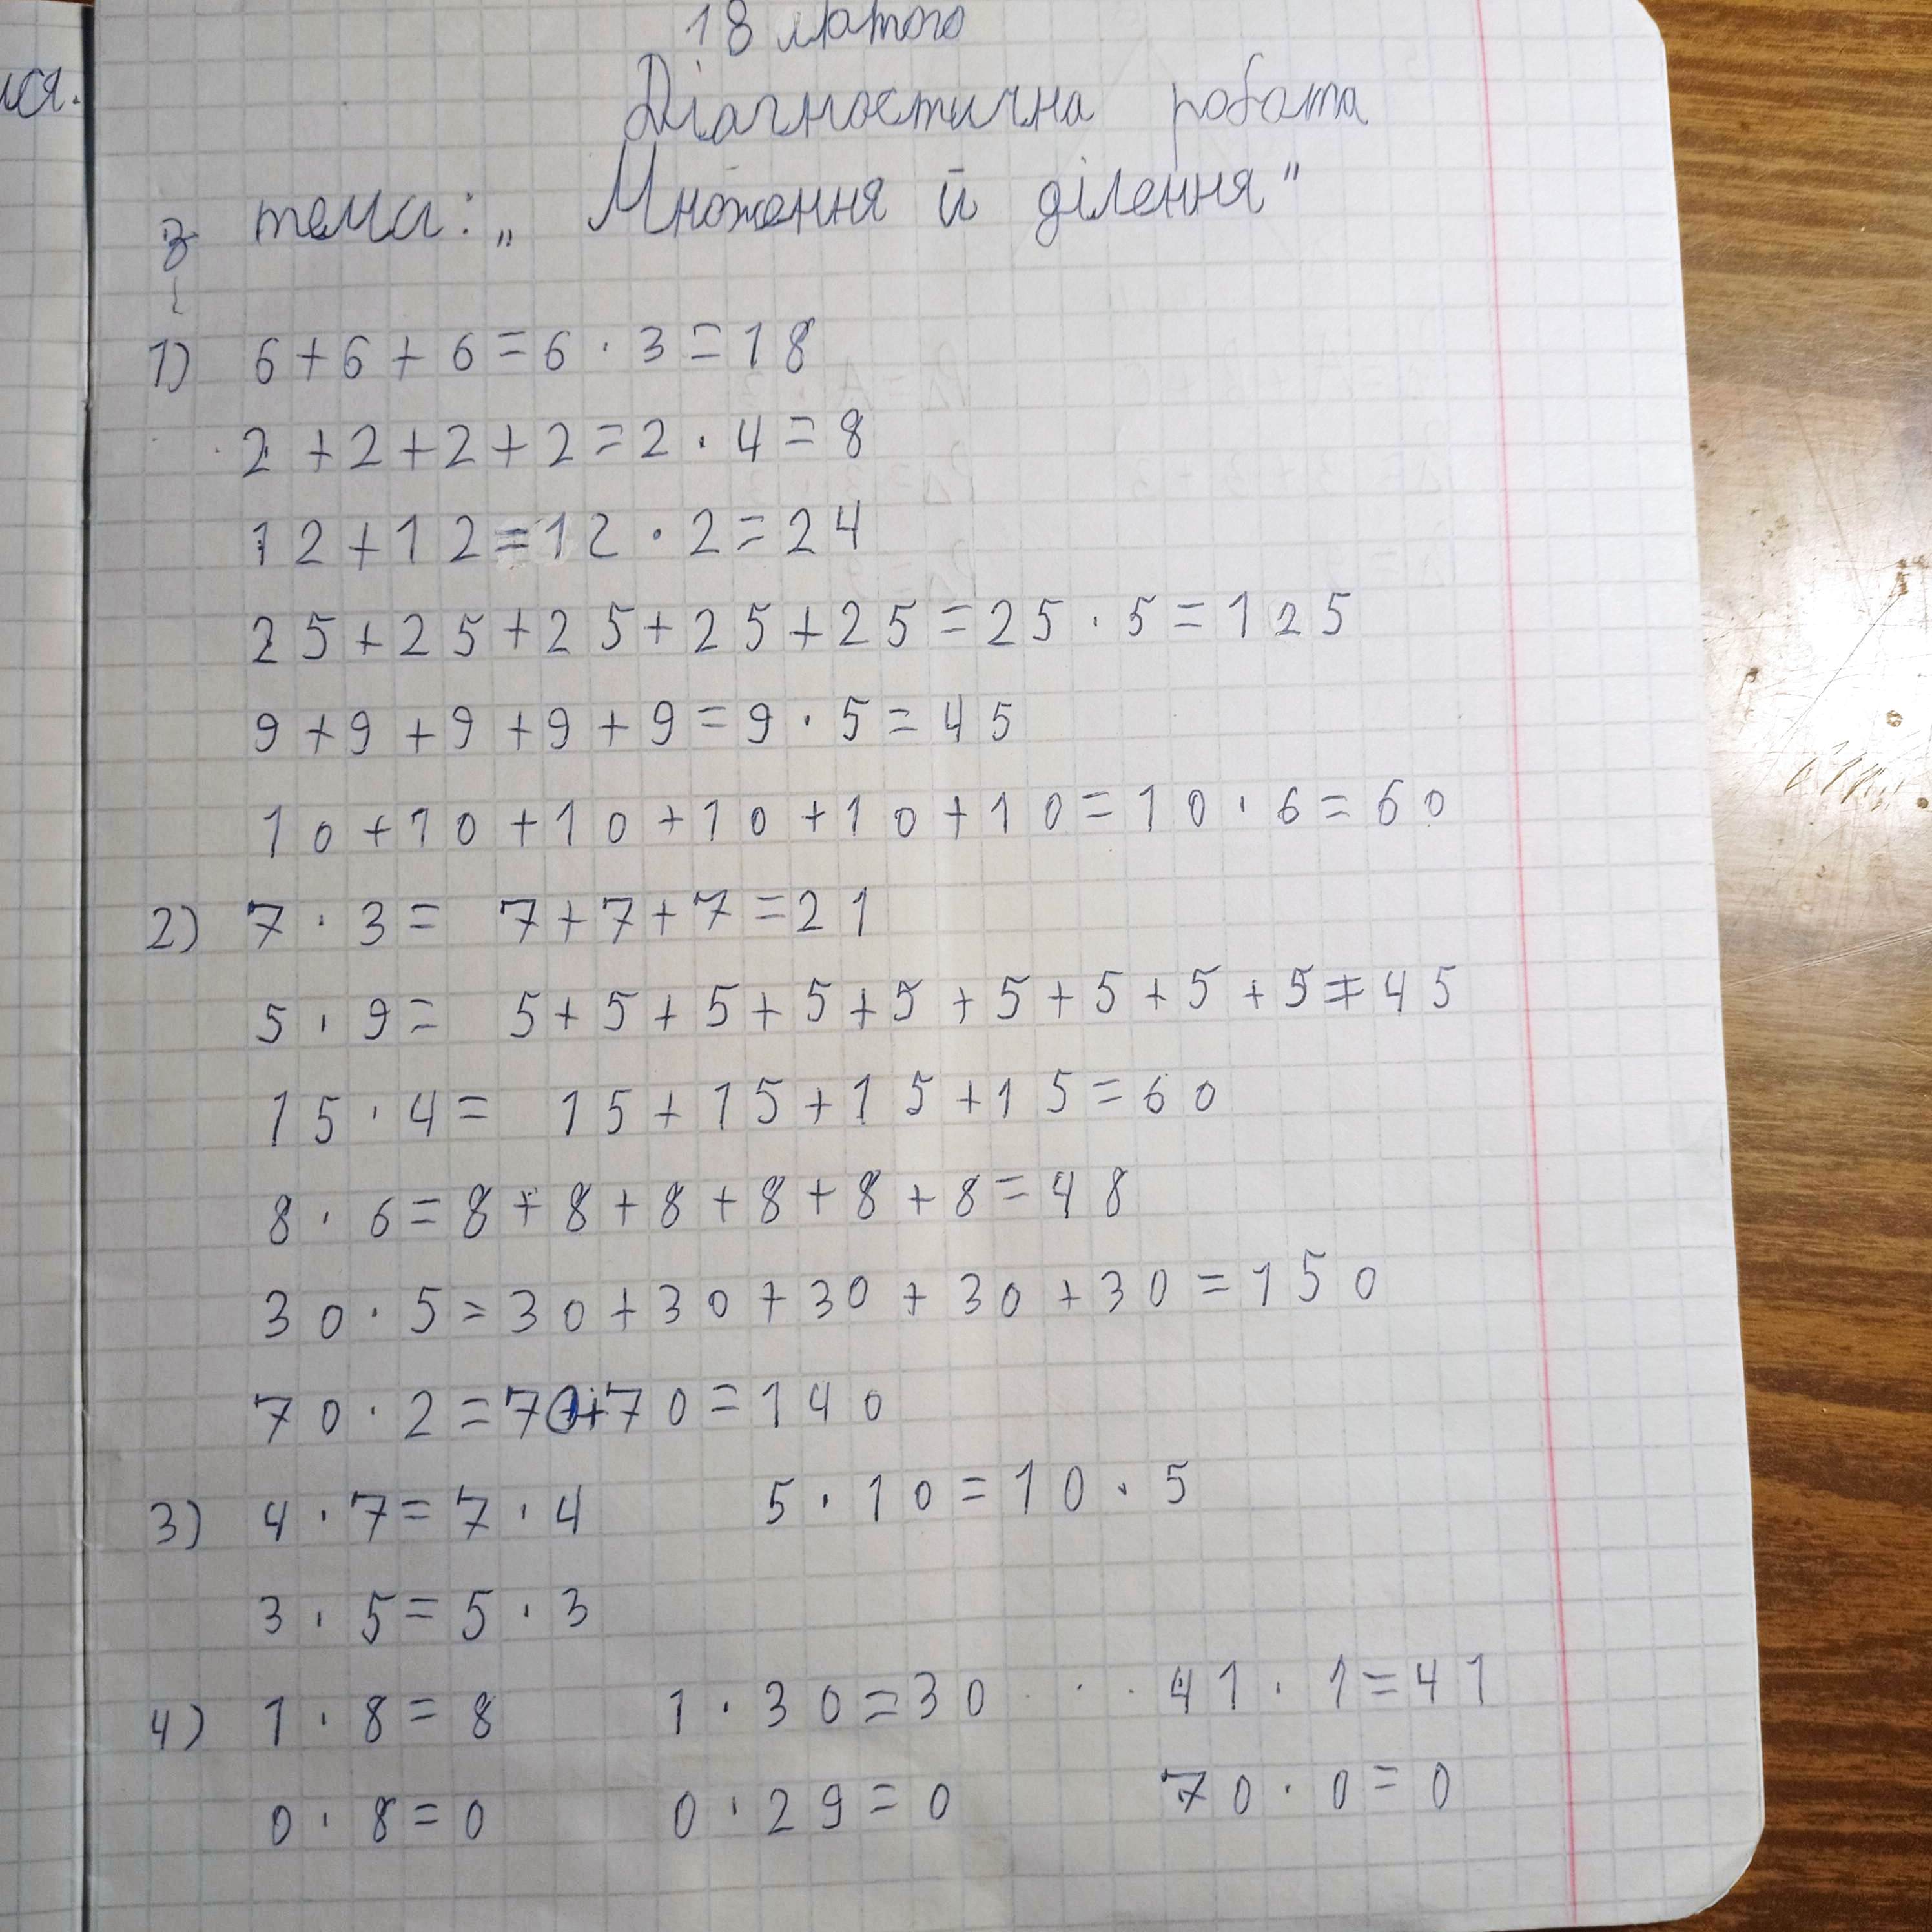 18 лютого
Діагностична робота
з тема: „ Множення й ділення"
1) 6+6+6=6·3=18
2+2+2+2=2·4=8
12+12=12·2=24
25+25+25+25+25=25·5=125
9+9+9+9+9=9·5=45
10+10+10+10+10+10=10·6=60
2) 7·3= 7+7+7=21
5·9= 5+5+5+5+5+5+5+5+5=45
15·4= 15+15+15+15=60
8·6=8+8+8+8+8+8=48
30·5=30+30+30+30+30=150
70·2=70+70=140
3) 4·7=7·4 5·10=10·5
3·5=5·3
4) 1·8=8 1·30=30 41·1=41
0·8=0 0·29=0 70·0=0